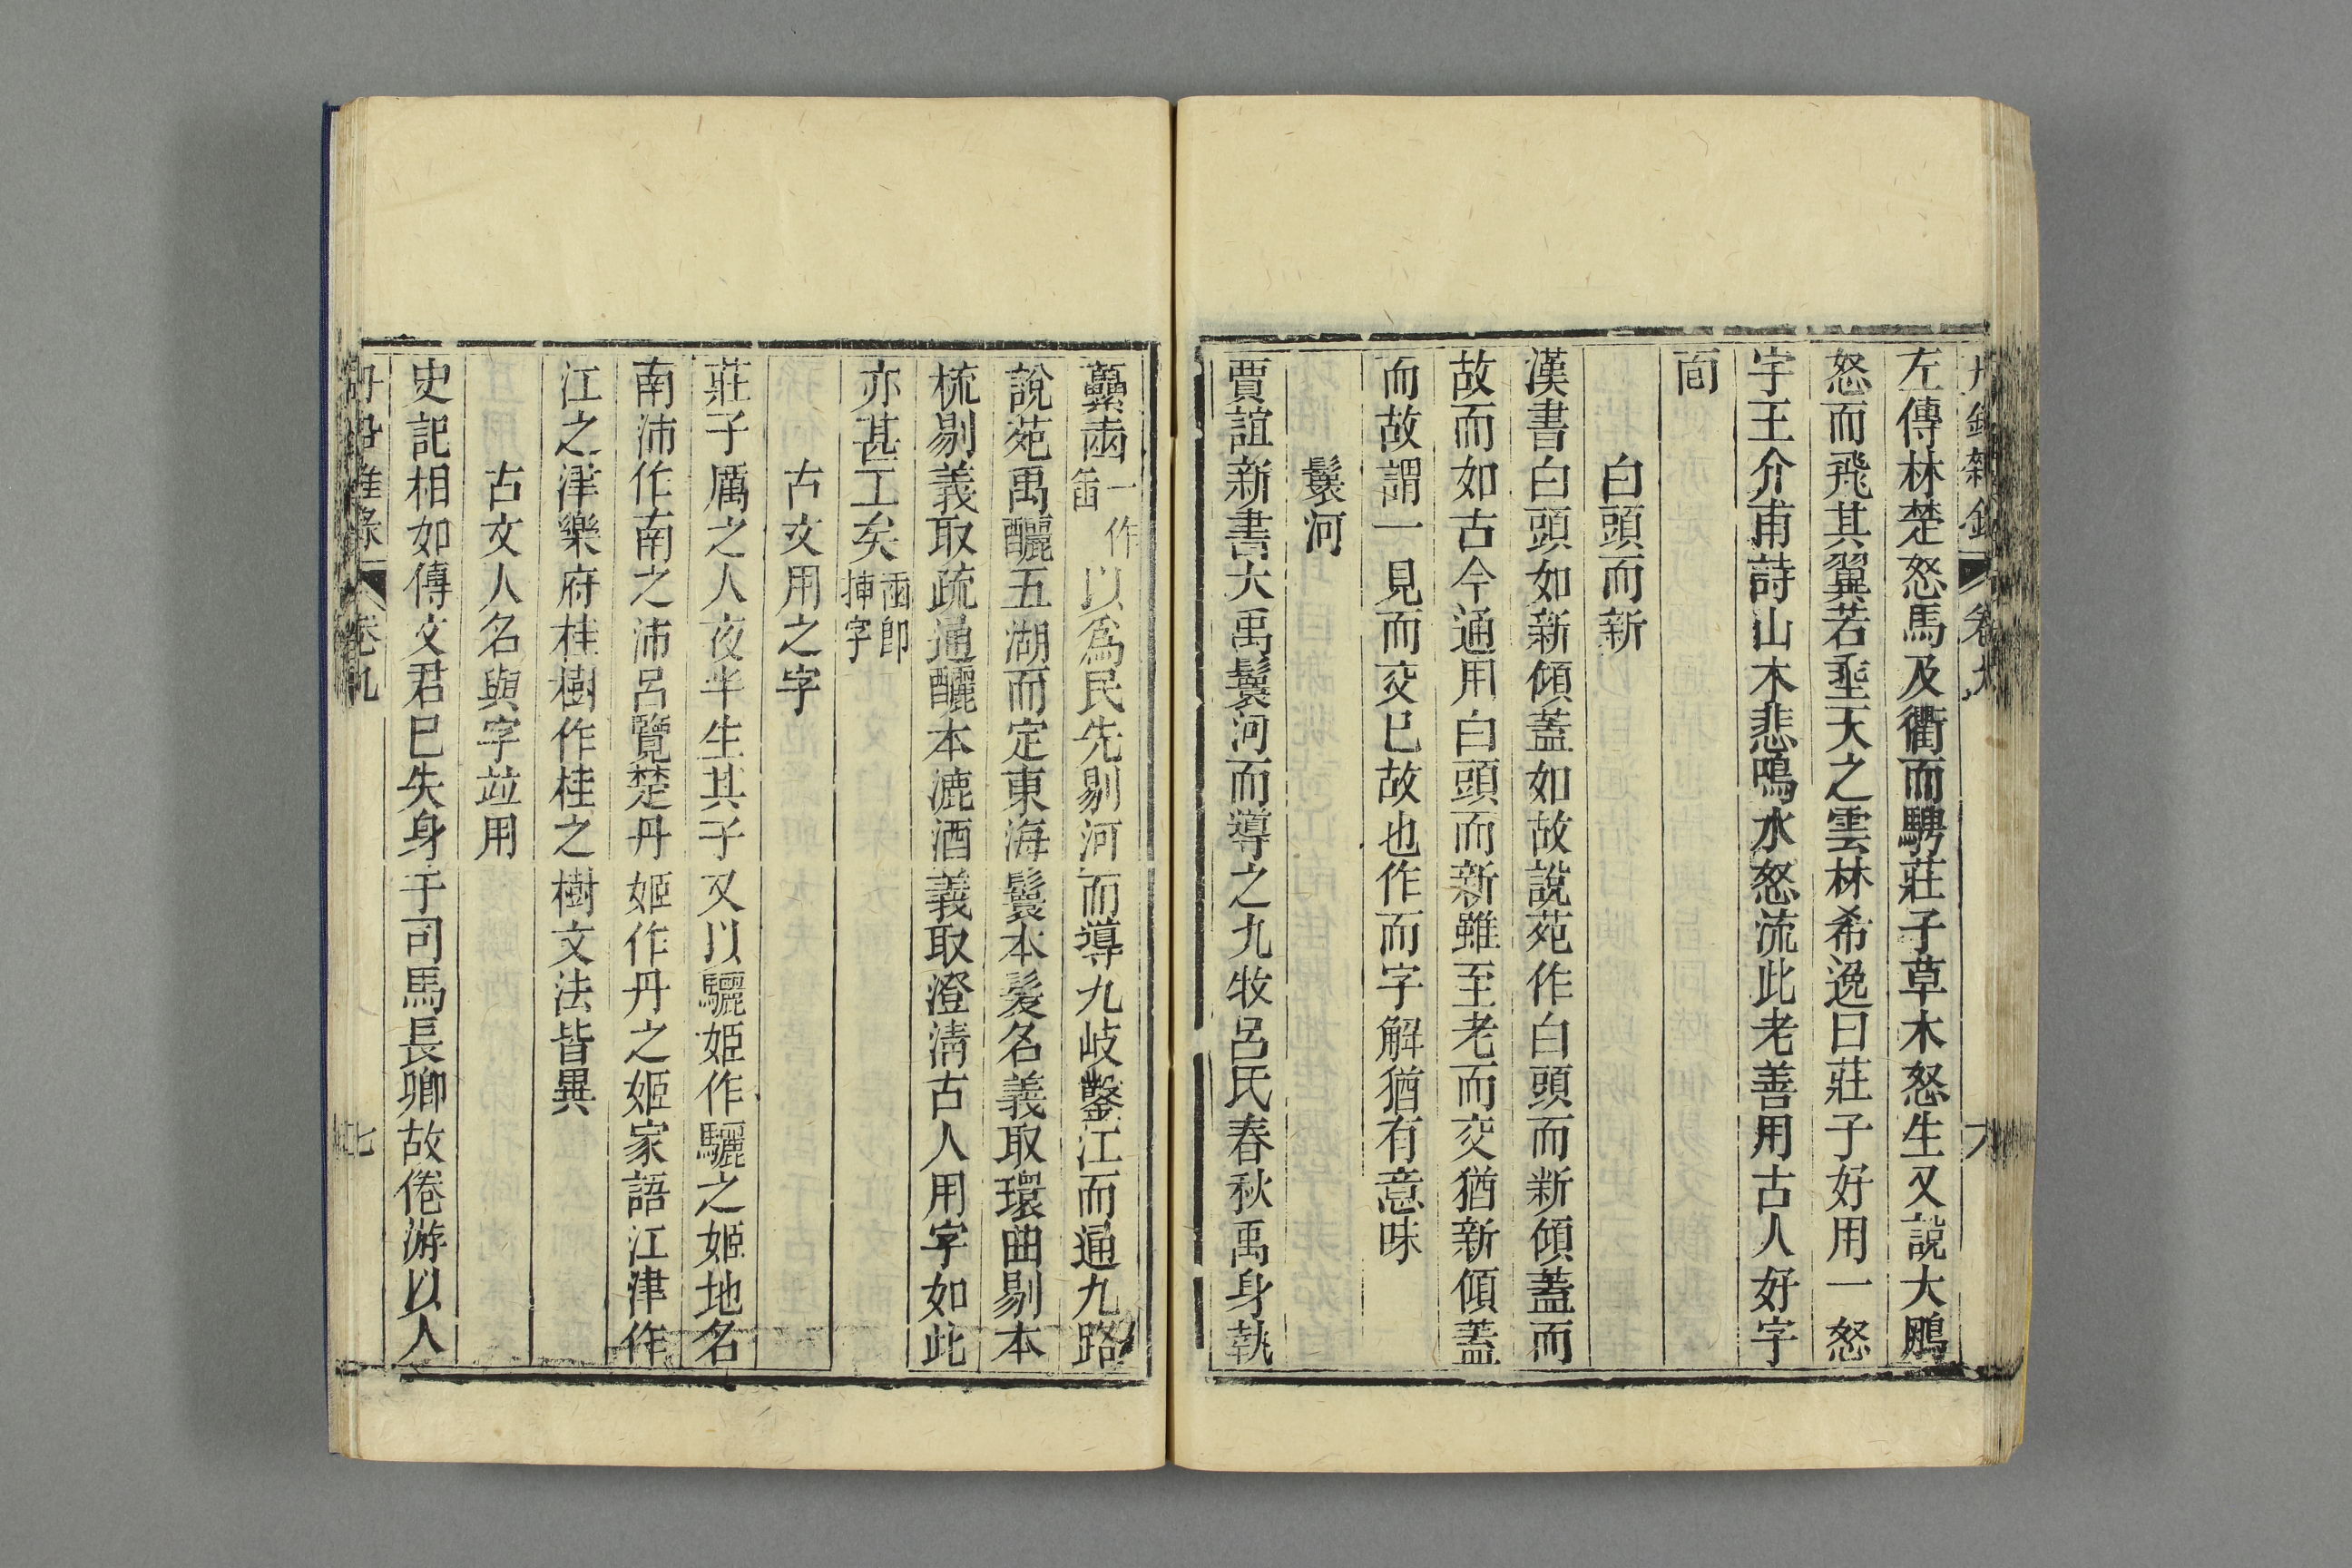 丹鉛雜錄 卷九 六
左傳林楚怒馬及衢而騁莊子草木怒生又說大鵬
怒而飛其翼若垂天之雲林希逸曰莊子好用一怒
字王介甫詩山木悲鳴水怒流此老善用古人好字
面
白頭而新
漢書白頭如新傾蓋如故說苑作白頭而新傾蓋而
故而如古今通用白頭而新雖至老而交猶新傾蓋
而故謂一見而交已故也作而字解猶有意味
鬟河
賈誼新書大禹鬟河而導之九牧呂氏春秋禹身執
虆臿一作䈄以為民先剔河而導九岐鑿江而通九路
說苑禹釃五湖而定東海鬟本髮名義取環曲剔本
梳剔義取疏通釃本漉酒義取澄淸古人用字如此
亦甚工矣臿卽插字
古文用之字
莊子厲之人夜半生其子又以驪姬作驪之姬地名
南沛作南之沛呂覽楚丹姬作丹之姬家語江津作
江之津樂府桂樹作桂之樹文法皆異
古文人名與字竝用
史記相如傳文君已失身于司馬長卿故倦游以人
丹鉛雜錄 卷九 七